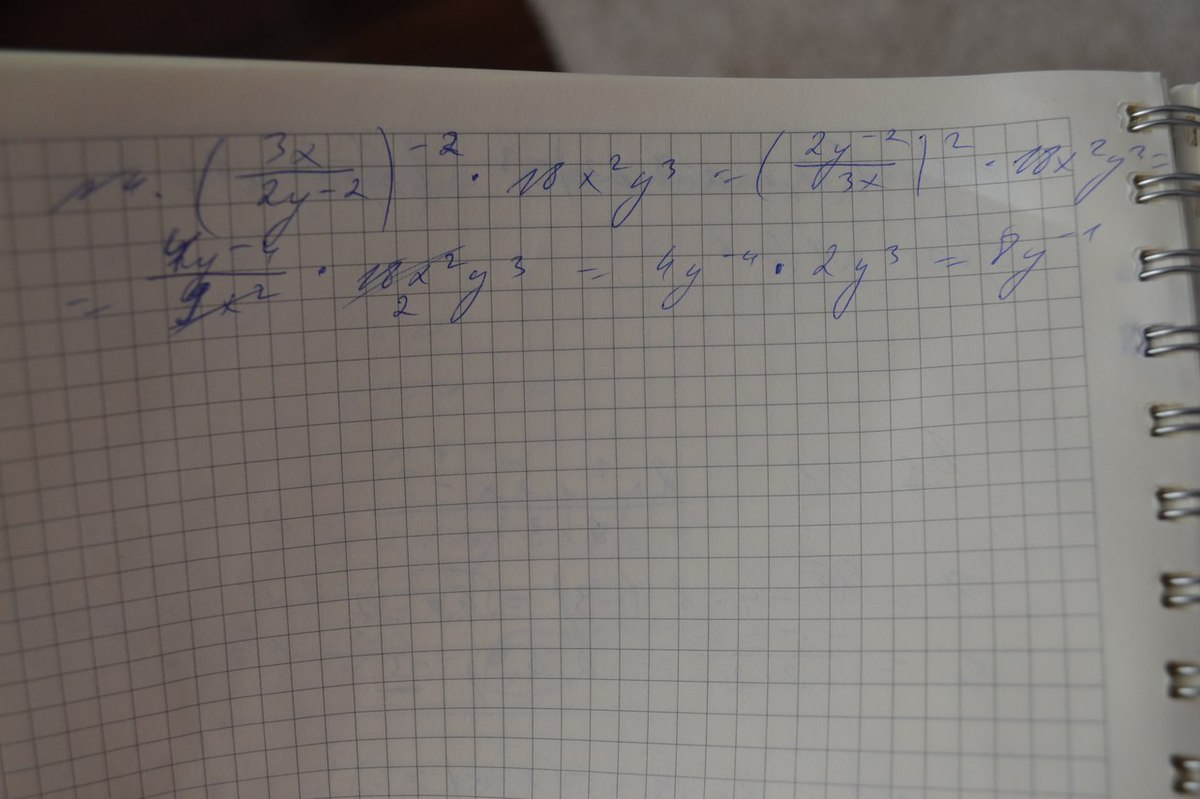 №4. (3x/2y⁻²)⁻² · 18x²y³ = (2y⁻²/3x)² · 18x²y³ =
= 4y⁻⁴/9x² · 18x²y³ 2 = 4y⁻⁴ · 2y³ = 8y⁻¹